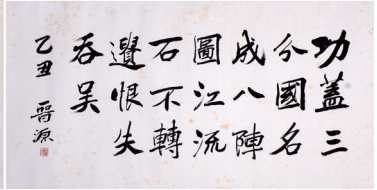 功蓋三
分國名
成八陣
圖江流
石不轉
遺恨失
吞吳
乙丑
晉源